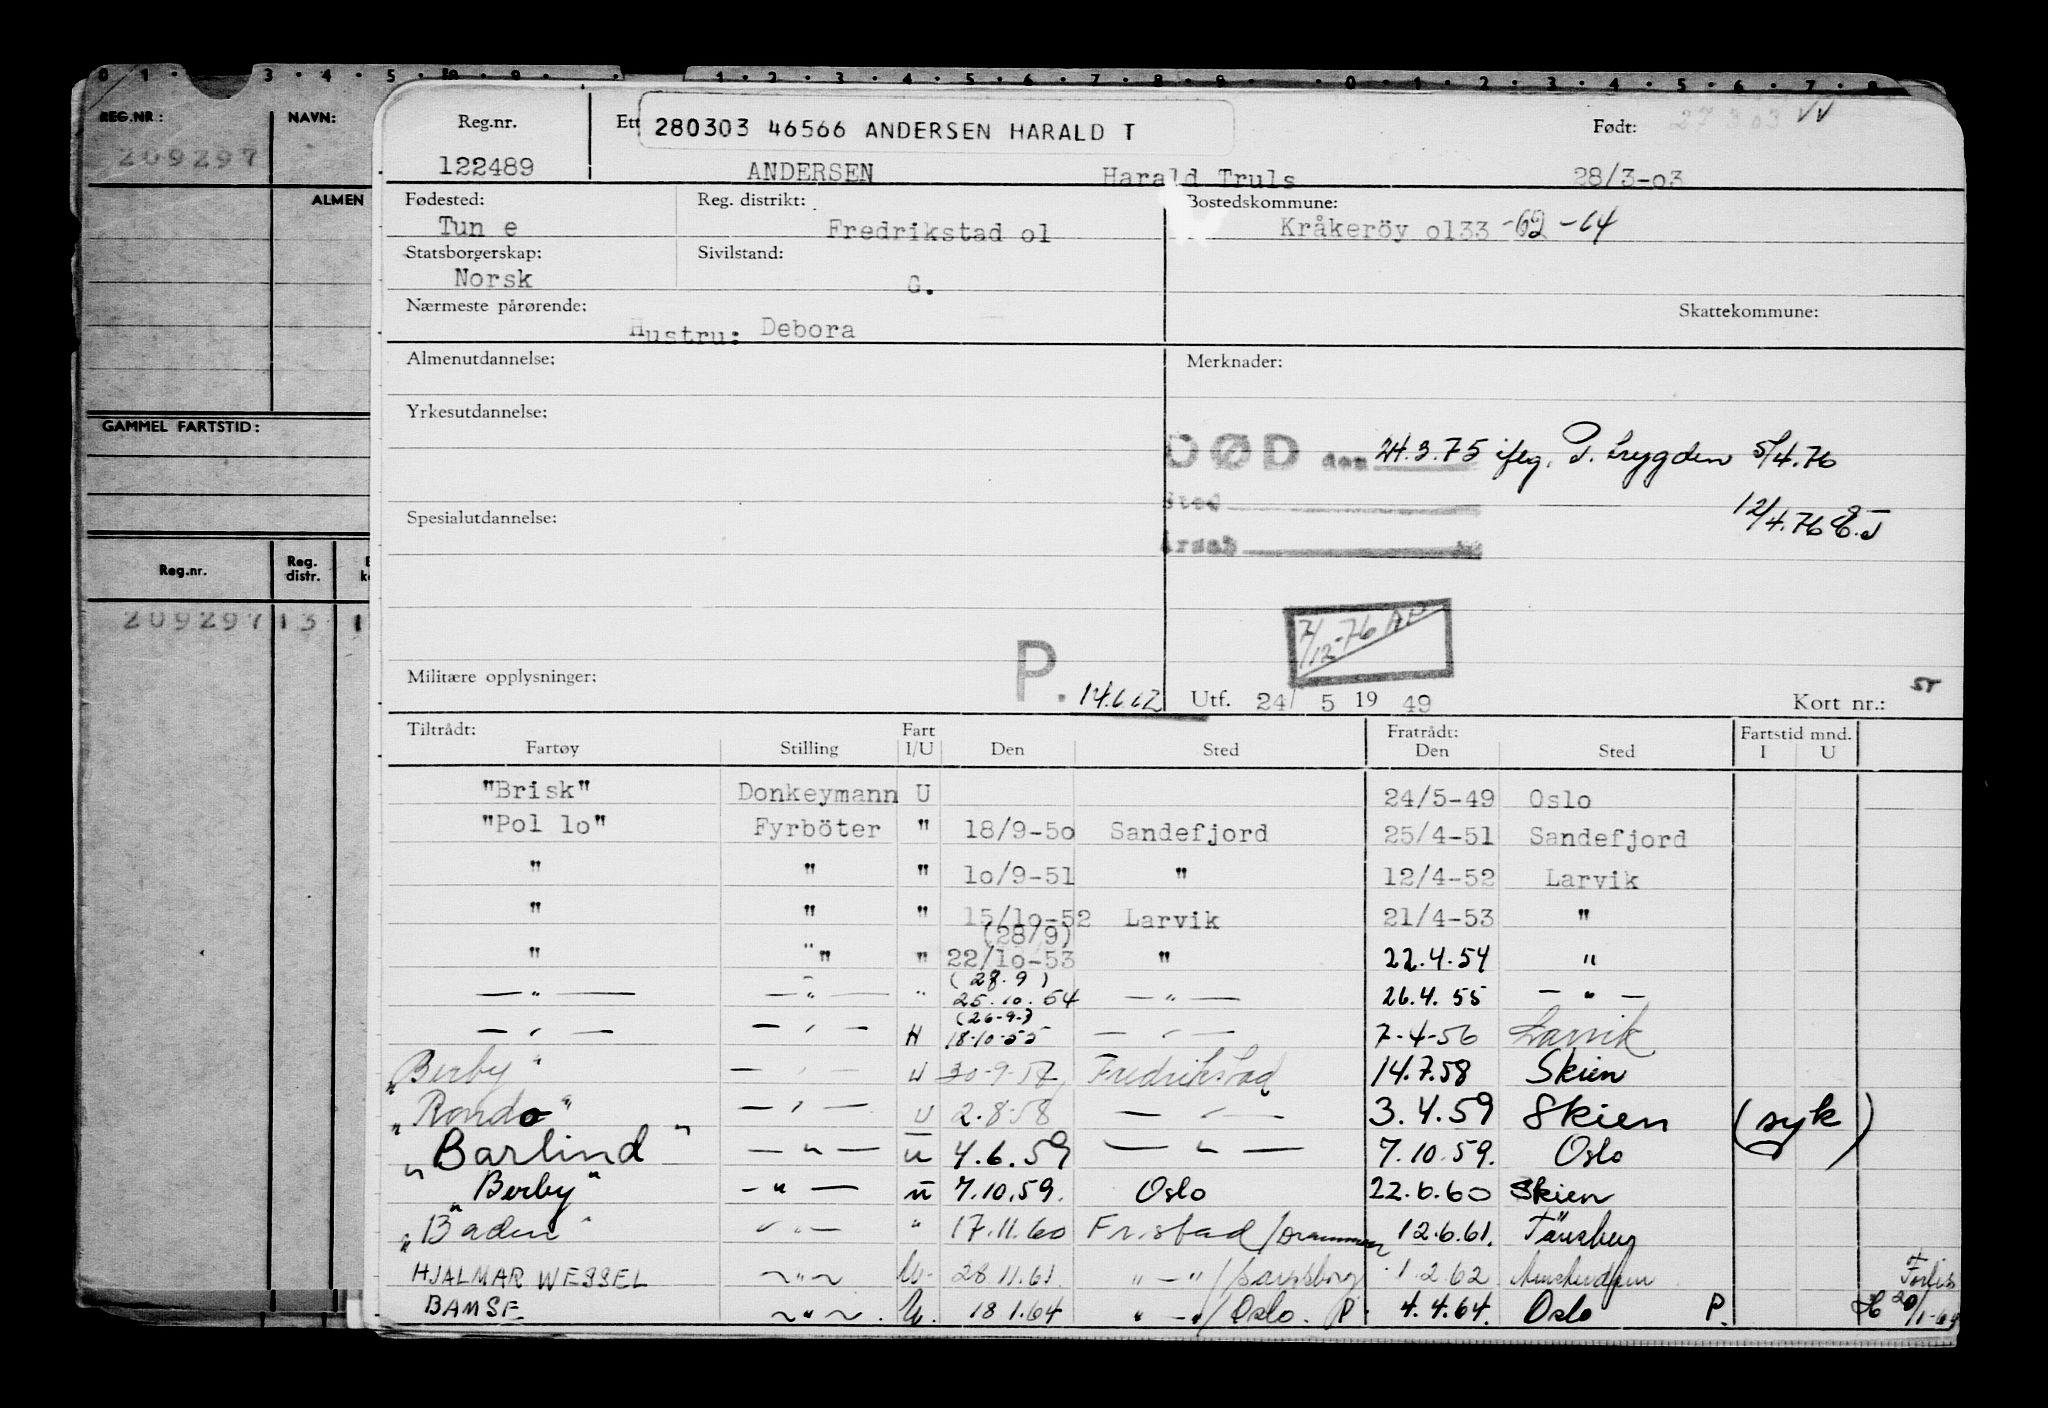 0 1 · 3 · 4 · 5 · 8 · 9 · 1 · 2 · 3 · 4 · 5 · 6 · 7 · 8 · 9 · 0 · 1 · 2 · 3 · 4 · 5 · 6 · 7 · 8
REG.NR: NAVN:
209297
ALMEN
GAMMEL FARTSTID:
Reg.nr. Reg. distr.
209297 13 1
Reg.nr. Ett 280303 46566 ANDERSEN HARALD T Født: 27 3 03 VV
122489 ANDERSEN Harald Truls 28/3-o3
Fødested: Reg. distrikt: Bostedskommune:
Tun e Fredrikstad o1 Kråkeröy o133 -62 -64
Statsborgerskap: Sivilstand:
Norsk G.
Nærmeste pårørende: Skattekommune:
Hustru: Debora
Almenutdannelse: Merknader:
Yrkesutdannelse:
DØD den 24.3.75 ifлg. P. trygden 5/4.76
Sted
12/4.76 E.J
Årsak
Spesialutdannelse:
7/12-76 AP
Militære opplysninger: P. 14.6.62 Utf. 24/ 5 19 49 Kort nr.:
Tiltrådt: Fart Fratrådt: Fartstid mnd.
Fartøy Stilling I/U Den Sted Den Sted I U
"Brisk" Donkeymann U 24/5-49 Oslo
"Pol lo" Fyrböter " 18/9-5o Sandefjord 25/4-51 Sandefjord
" " " 1o/9-51 " 12/4-52 Larvik
" " " 15/1o-52 Larvik 21/4-53 "
(28/9)
" " " 22/1o-53 " 22.4.54 "
(28.9)
— " — — " — " 25.10.54 — " — 26.4.55 — " —
(26-9-)
— " — — " — H 18-10-55 — " — 7-4-56 Larvik
"Berby" — " — U 30-9-57 Fredrikstad 14.7.58 Skien
"Rondo" — " — U 2.8.58 — " — 3.4.59 Skien (syk)
"Barlind" — " — U 4.6.59 — " — 7.10.59. Oslo
"Berby" — " — U 7.10.59. Oslo 22.6.60 Skien
"Baden" — " — " 17.11.60 Fr.stad/Drammen 12.6.61. Tönsberg
HJALMAR WESSEL ~ " ~ U. 28.11.61. " — "/Sarpsborg 1.2.62 Forlis
BAMSE ~ " ~ U. 18 1.64 " — "/Oslo. P. 4.4.64. Oslo P. 20/1-64